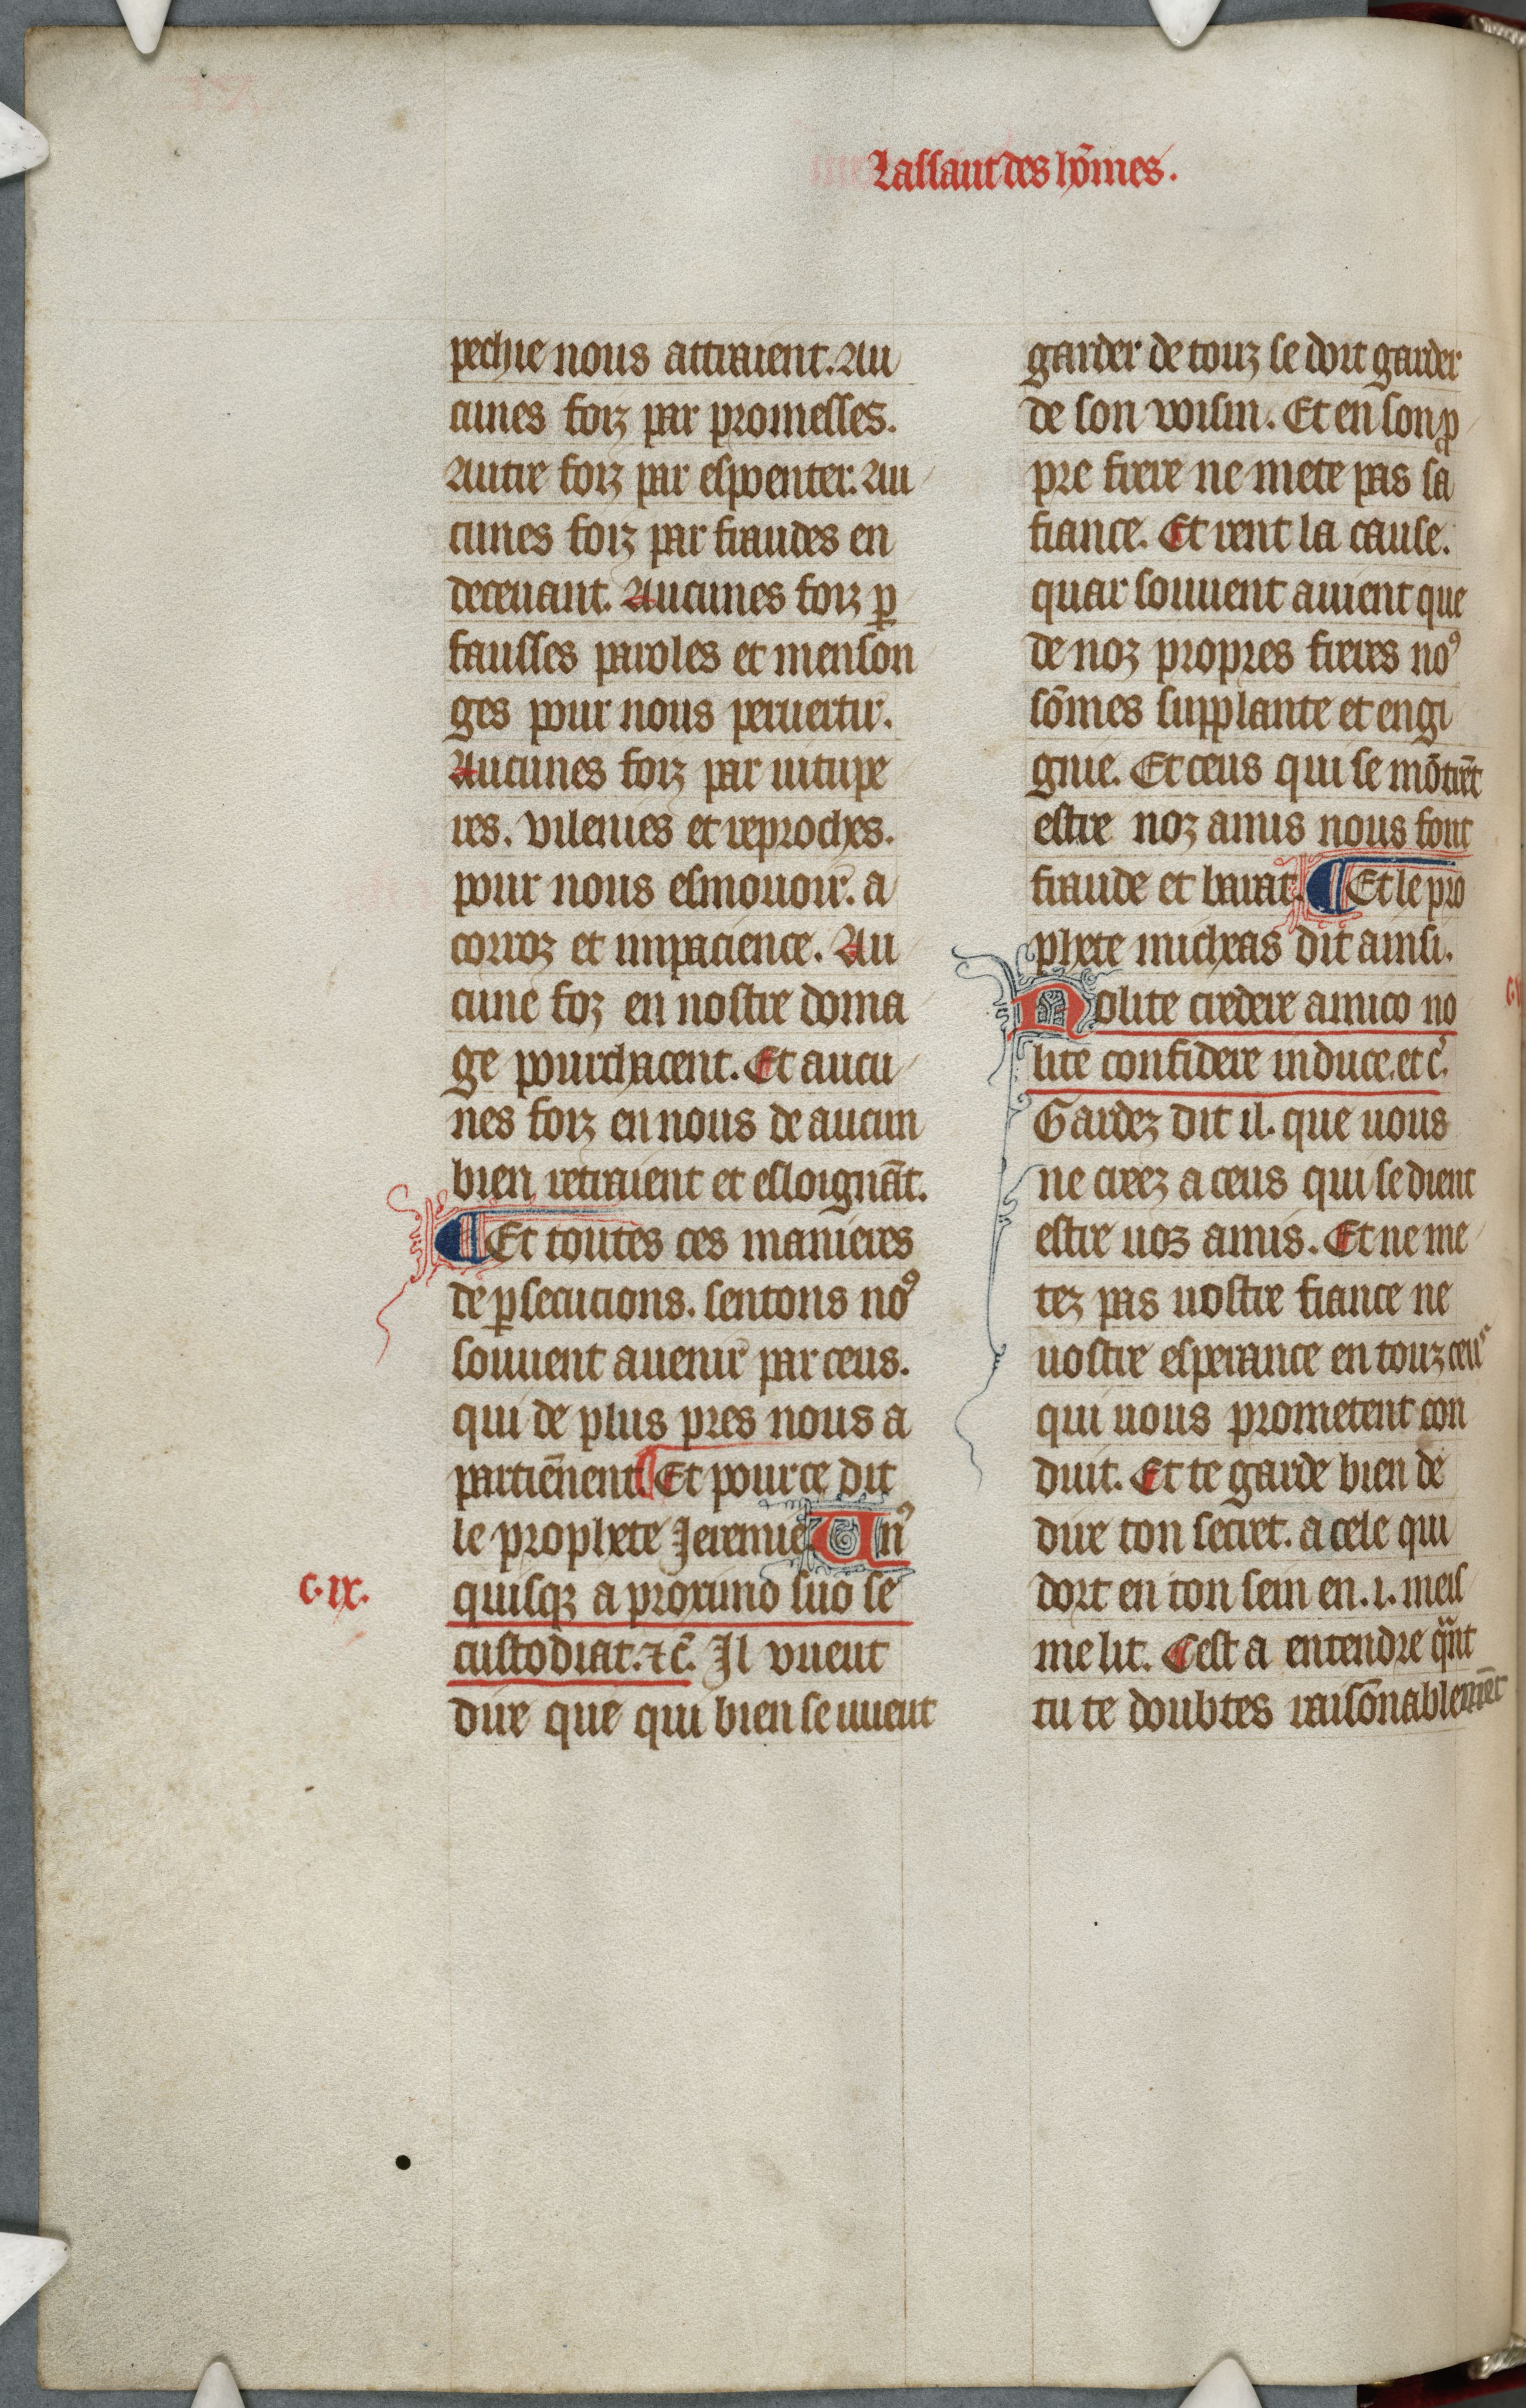 Lassaut des hõmes.
pechie nous attraient. Au
cunes foiz par promesses.
Autre foiz par espoenter. Au
cunes foiz par fraudes en
deceuant. Aucunes foiz ꝑ
fausses paroles et menson
ges pour nous peruertir.
Aucunes foiz par uitupe
res. vilenies et reproches.
pour nous esmouoir. a
corroz et impacience. Au
cune foz en nostre doma
ge pourchacent. Et aucu
nes foiz en nous de aucun
bien retraient et esloignãt.
¶ Et toutes ces manieres
de ꝑsecucions. sentons noꝰ
souuent auenir par ceus.
qui de plus pres nous a
partiẽnent. ¶ Et pource dit
le prophete Jeremie. Unꝰ
c. ix.
quisqꝫ a proximo suo se
custodiat. ⁊c̃. Il vueut
dire que qui bien se uueut
garder de touz se doit garder
de son voisin. Et en son ꝓ
pre frere ne mete pas sa
fiance. Et rent la cause.
quar souuent auient que
de noz propres freres noꝰ
sõmes supplante et engi
gnie. Et ceus qui se mõtrẽt
estre noz amis nous font
fraude et barat. ¶ Et le pro
phete micheas dit ainsi.
Nolite credere amico no
lite confidere in duce. et c̃.
Gardez dit il. que uous
ne creez a ceus qui se dient
estre uoz amis. Et ne me
tez pas uostre fiance ne
uostre esperance en touz ceus
qui uous prometent con
duit. Et te garde bien de
dire ton secret. a cele qui
dort en ton sein en .i. meis
me lit. Cest a entendre q̃nt
tu te doubtes raisõnablemẽt